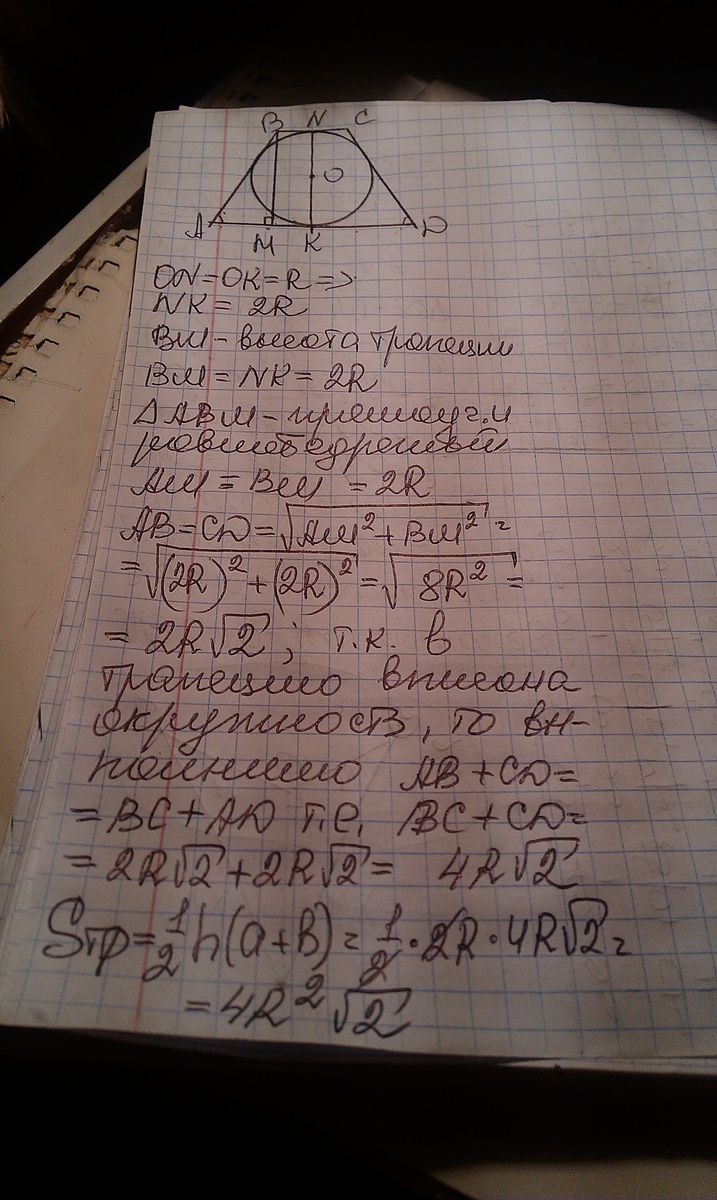 B N C
O
A M K D
ON=OK=R =>
NK = 2R
BM - высота трапеции
BM = NK = 2R
ΔABM - прямоуг. и
равнобедренный
AM = BM = 2R
AB=CD=√(AM²+BM²)=
=√((2R)²+(2R)²)=√(8R²)=
= 2R√2; т.к. в
трапецию вписана
окружность, то вы-
полнимо AB+CD=
=BC+AD т.е. BC+CD=
=2R√2+2R√2= 4R√2
Sтр=1/2 h(a+b)=1/2·2R·4R√2=
=4R²√2